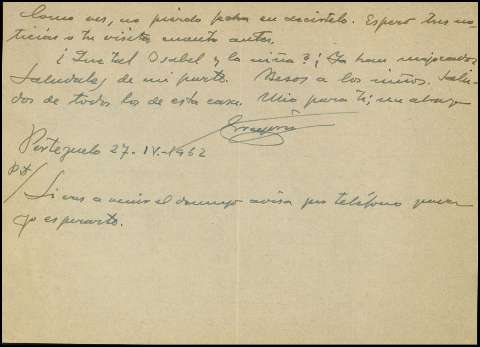 Como ves, no pierdo fecha en decírtelo. Espero tus no-
ticias o tu visita, cuanto antes.
¿Que tal Isabel y la niña? ¿Ya han mejorado?
Saludales de mi parte. Besos a los niños. Salu-
dos de todos los de esta casa. Mio para ti, un abrazo
Portezuelo 27-IV-1962
PD/ Si vas a venir el domingo avisa por teléfono para
yo esperarte.